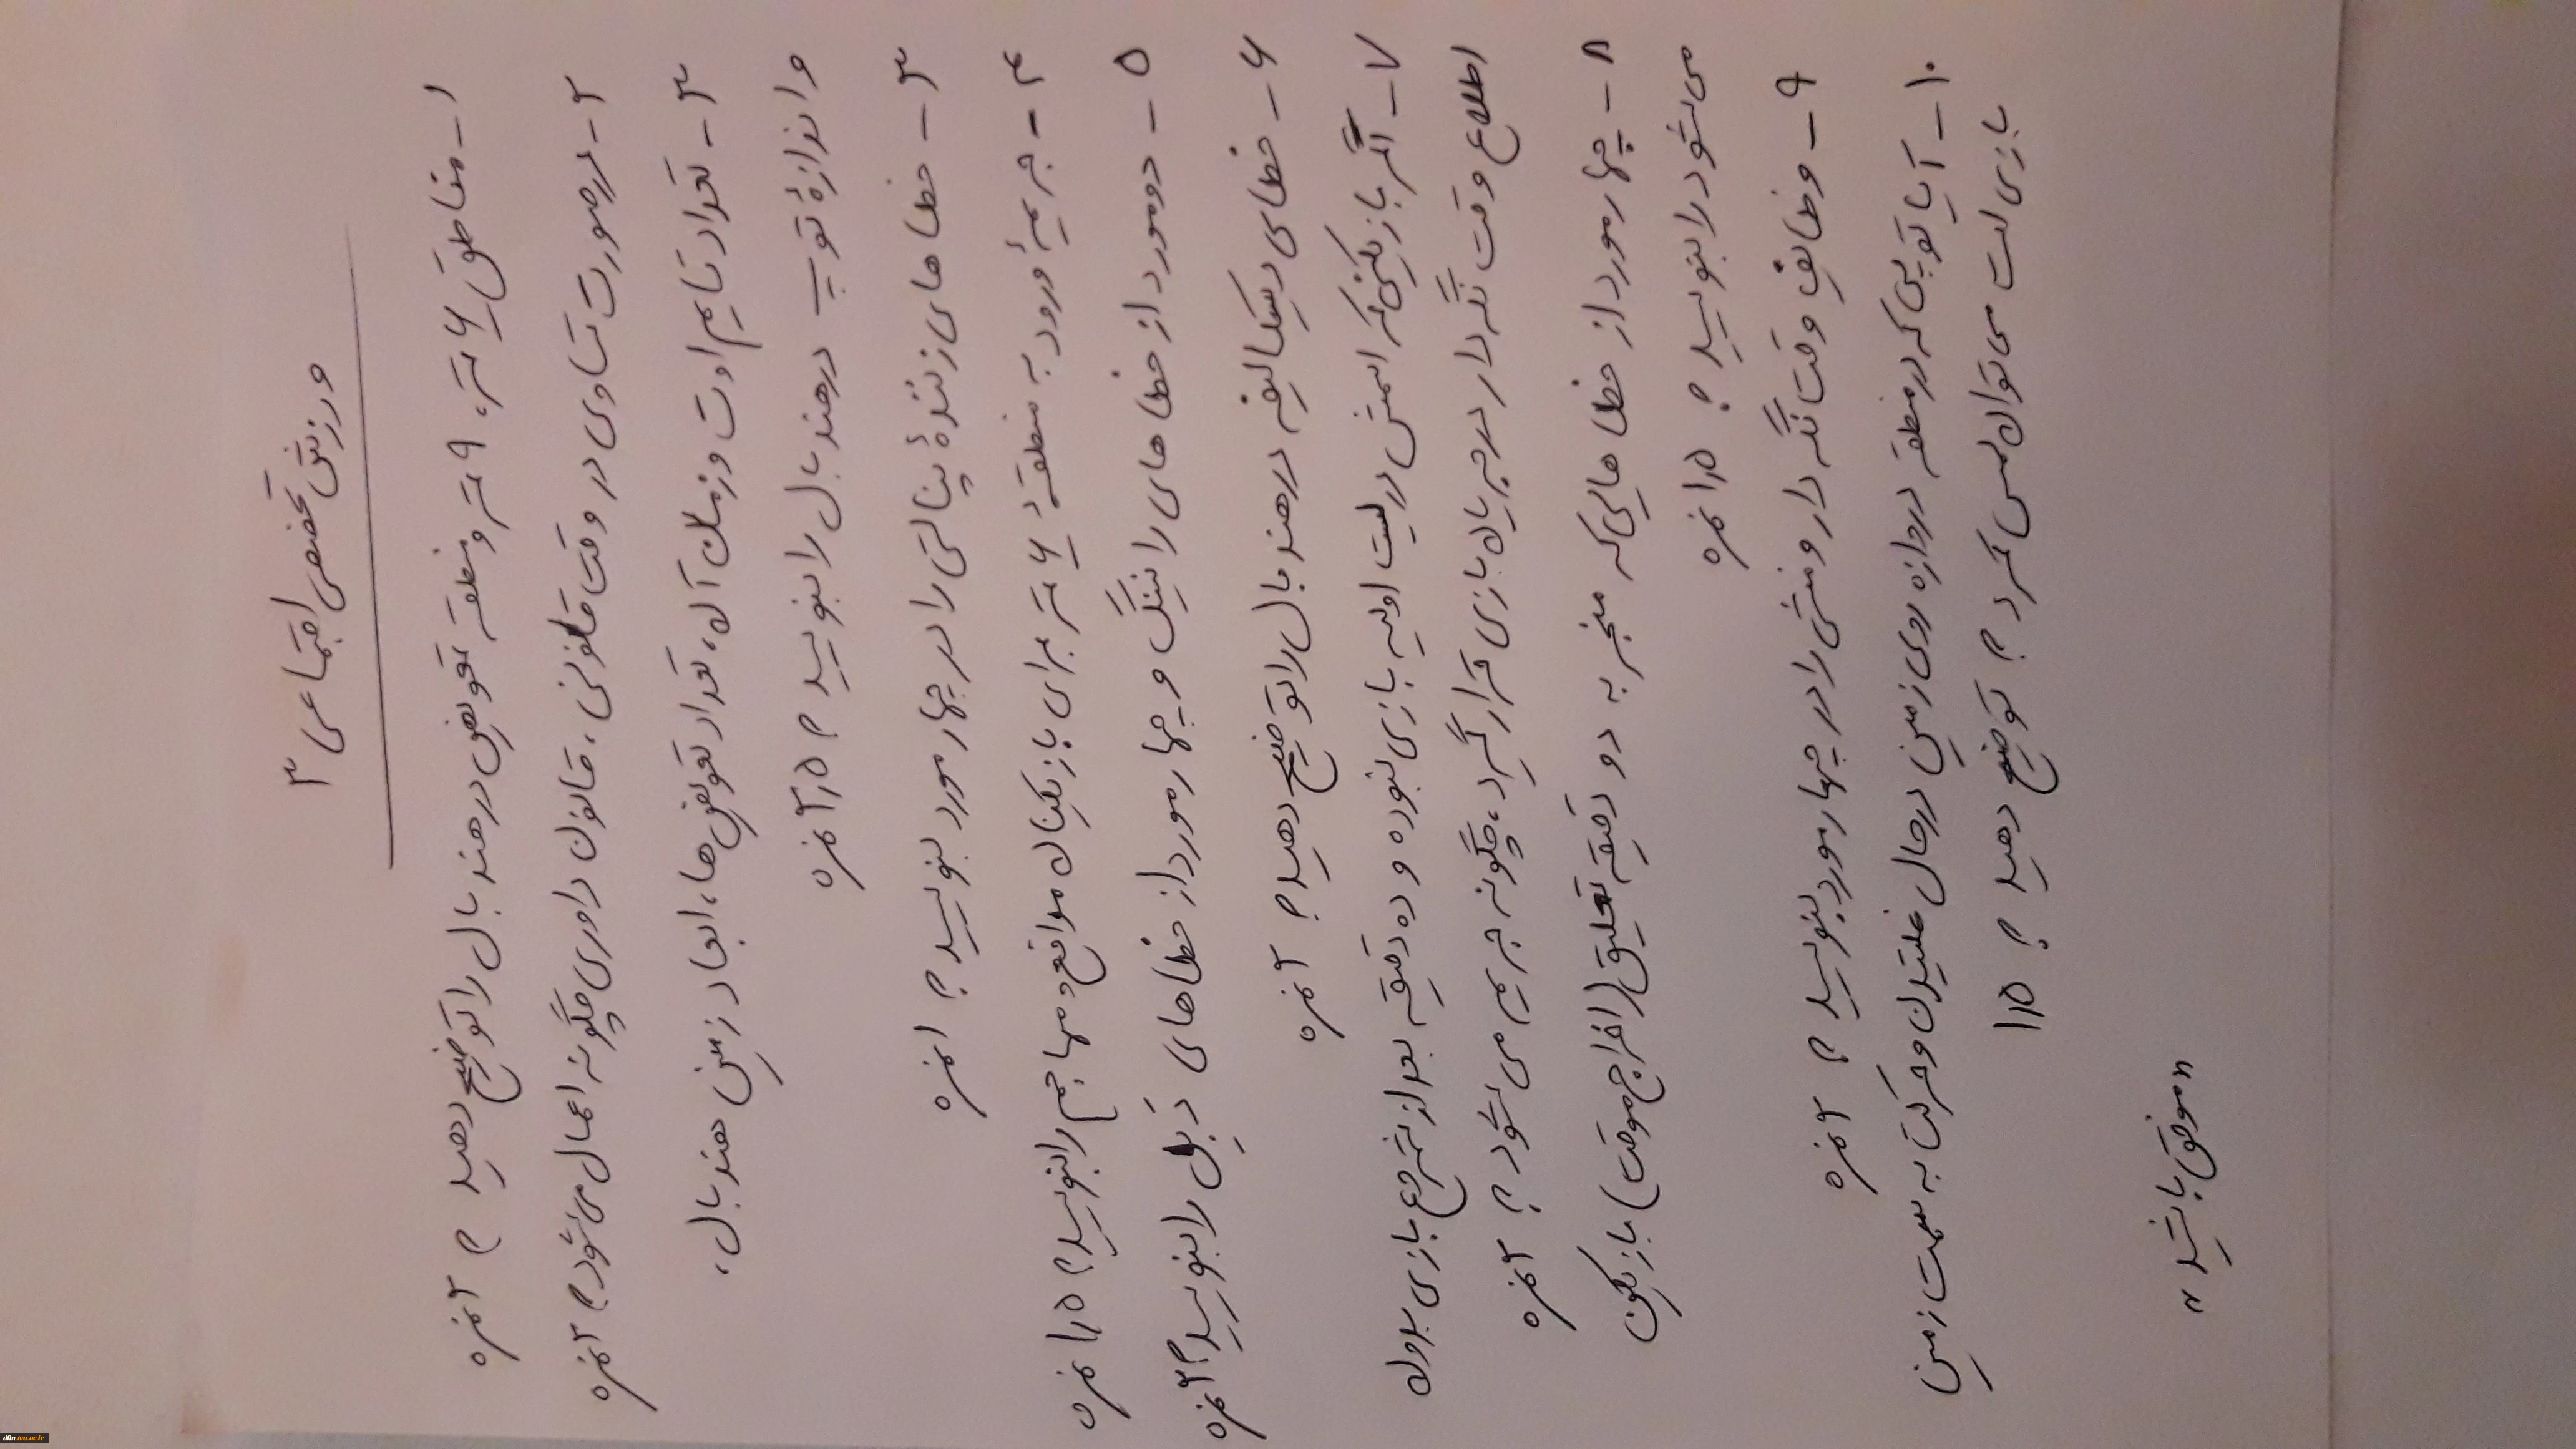 ورزش تخصصی اجتماعی ۳
۱- مناطق ۶ متر، ۹ متر و منطقه تعویض در هندبال را توضیح دهید ؟ ۲ نمره
۲- در صورت تساوی در وقت قانونی، قانون داوری چگونه اعمال می شود؟ ۲ نمره
۳- تعداد تایم اوت و زمان آن، تعداد تعویض ها، ابعاد زمین هندبال،
و اندازهٔ توپ در هندبال را بنویسید ؟ ۲٫۵ نمره
۳- خطاهای زنندهٔ پنالتی را در چهار مورد بنویسید ؟ ۱ نمره
۴- جریمهٔ ورود به منطقه ۶ متر برای بازیکنان مدافع و مهاجم را بنویسید؟ ۱٫۵ نمره
۵- دو مورد از خطاهای رانینگ و چهار مورد از خطاهای دبل را بنویسید؟ ۳ نمره
۶- خطای دیسکالیفه در هندبال را توضیح دهید؟ ۲ نمره
۷- اگر بازیکنی که اسمش در لیست اولیه بازی نبوده و ده دقیقه بعد از شروع بازی بدون
اطلاع وقت نگه دار در جریان بازی قرار گیرد، چگونه جریمه می شود؟ ۲ نمره
۸- چهار مورد از خطاهایی که منجر به دو دقیقه تعلیق (اخراج موقت) بازیکن
می شود را بنویسید ؟ ۱٫۵ نمره
۹- وظایف وقت نگه دار و منشی را در چهار مورد بنویسید ؟ ۲ نمره
۱۰- آیا توپی که در منطقه دروازه روی زمین در حال غلتیدن و حرکت به سمت زمین
بازی است می توان لمس کرد ؟ توضیح دهید ؟ ۱٫۵
"موفق باشید"
dfm.tvu.ac.ir